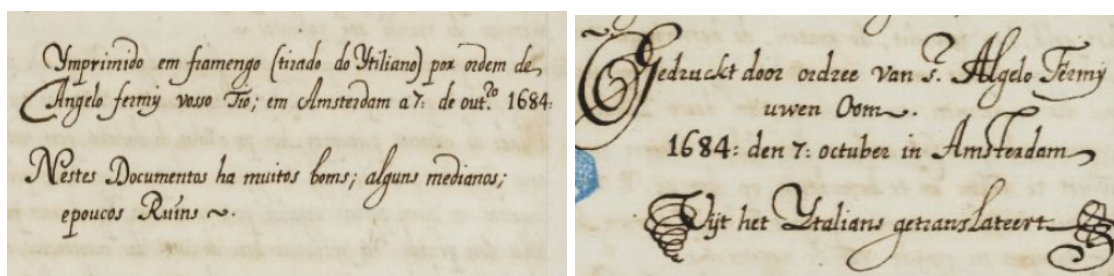 Ymprimido em framengo (tirado do Ytiliano) por ordem de
Angelo fermy vosso Tio; em Amsterdam a 7: de out.ro 1684:
Nestes Documentos ha muitos boms; alguns medianos;
epoucos Ruins ~.
Gedruckt door ordree van s.r Algelo Fermy
uwen Oom~.
1684: den 7: octuber in Amsterdam
Uijt het Ytalians getranslateert